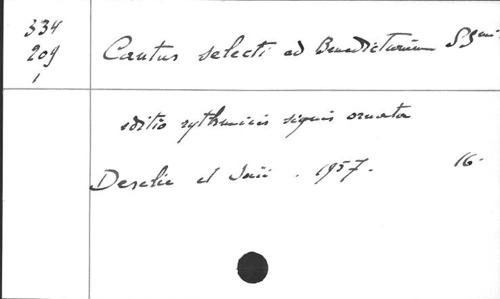 334
209
1
Cantus selecti ad Benedictionem SSmi
editio rythmicis signis ornata
Desclée et Socii . 1957.
16.